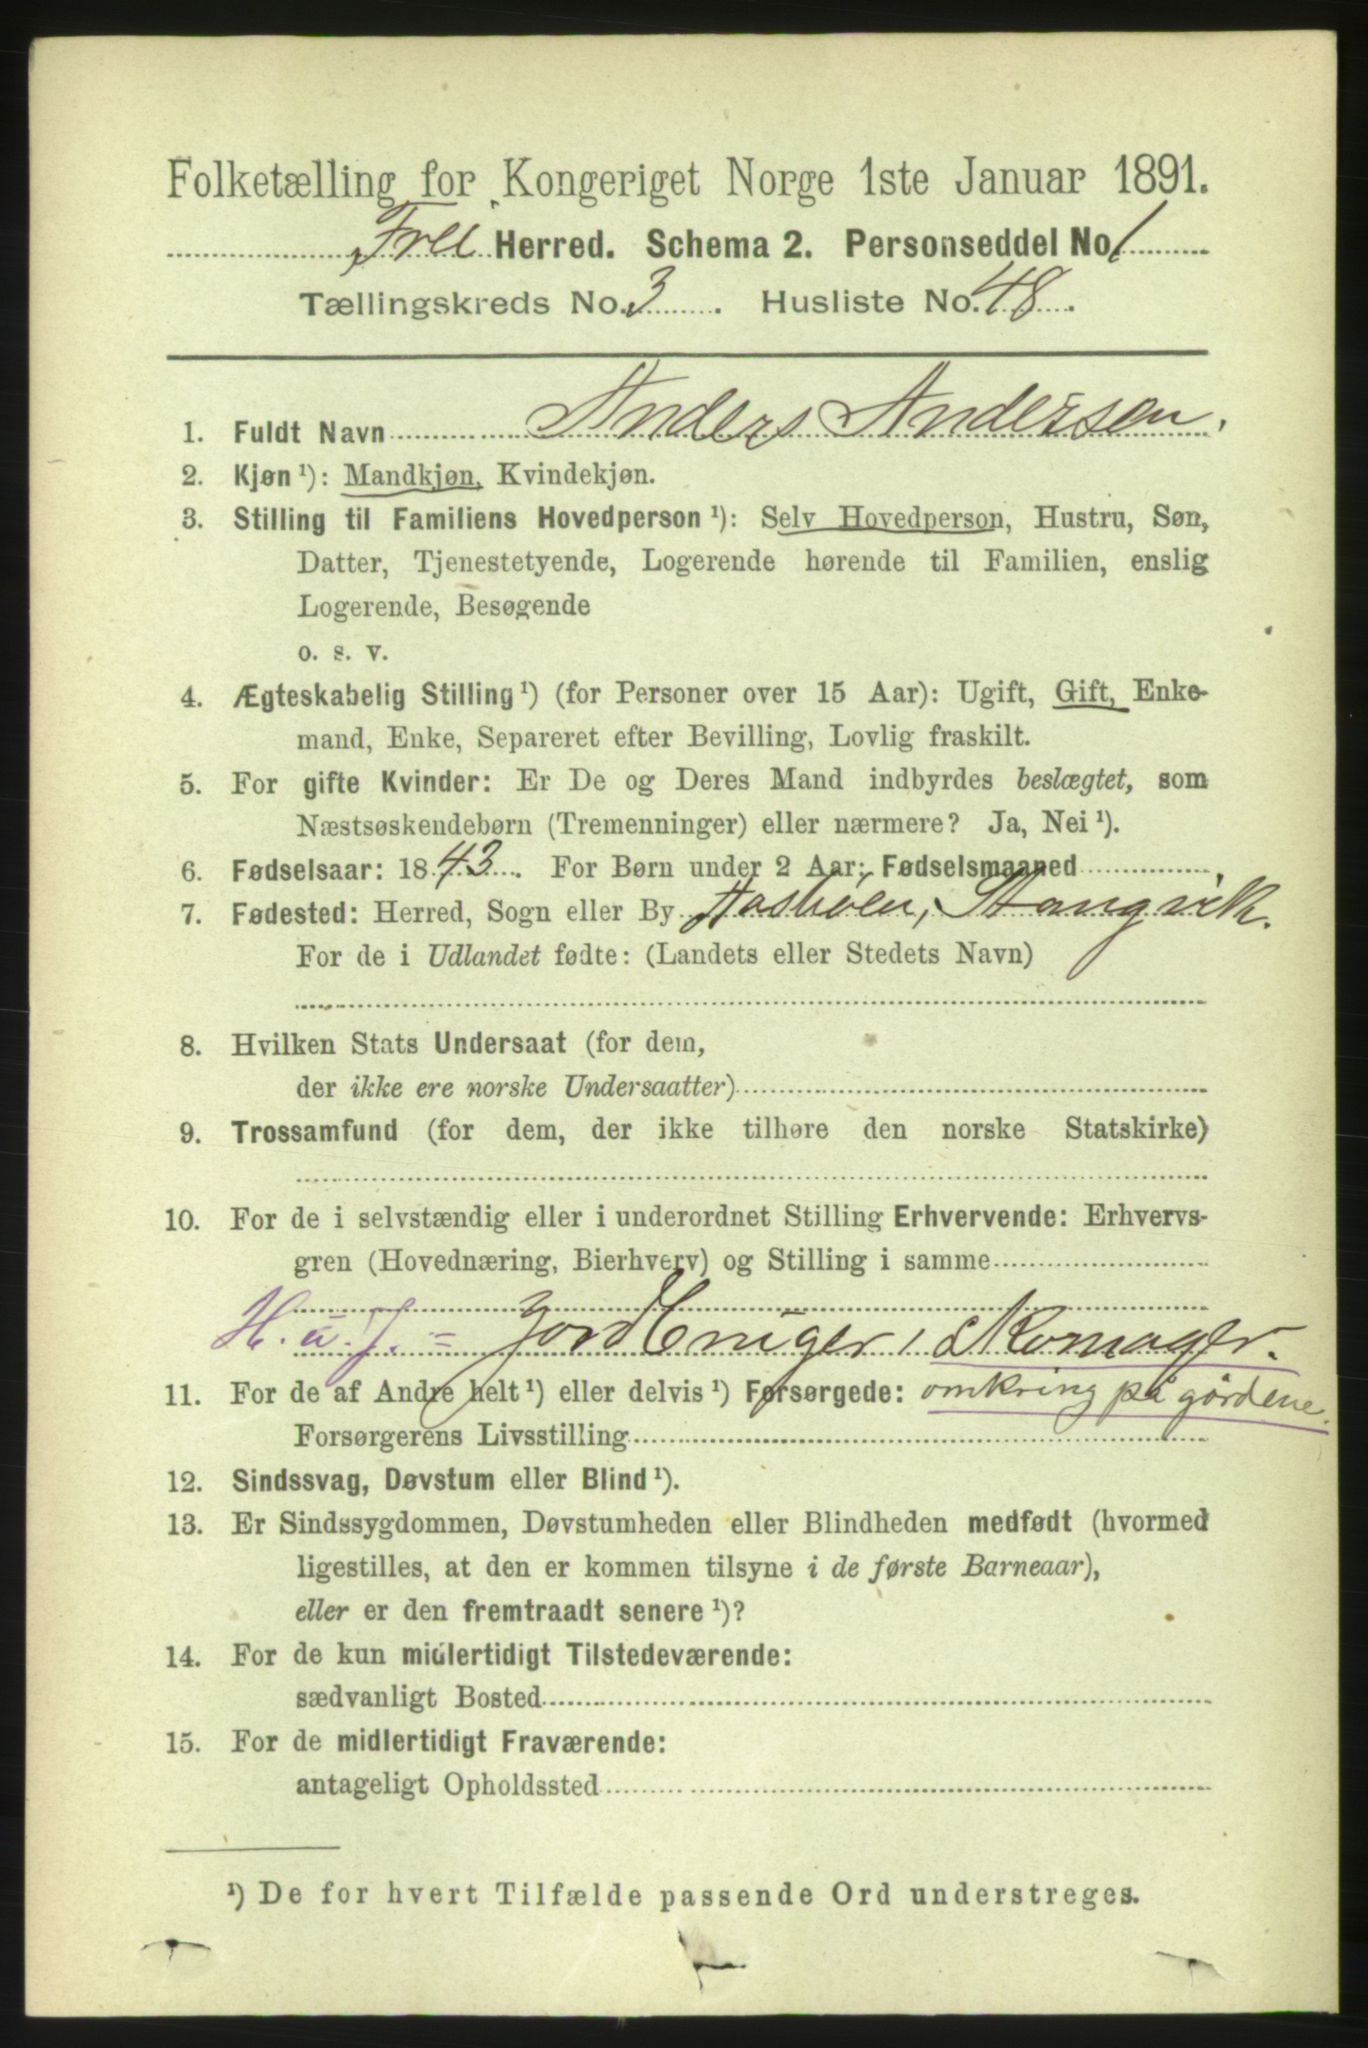 Folketælling for Kongeriget Norge 1ste Januar 1891.
Frei Herred. Schema 2. Personseddel No. 1
Tællingskreds No. 3. Husliste No. 48.
1. Fuldt Navn Anders Andersen.
2. Kjøn ¹): Mandkjøn, Kvindekjøn.
3. Stilling til Familiens Hovedperson ¹): Selv Hovedperson, Hustru, Søn,
Datter, Tjenestetyende, Logerende hørende til Familien, enslig
Logerende, Besøgende
o. s. v.
4. Ægteskabelig Stilling ¹) (for Personer over 15 Aar): Ugift, Gift, Enke-
mand, Enke, Separeret efter Bevilling, Lovlig fraskilt.
5. For gifte Kvinder: Er De og Deres Mand indbyrdes beslægtet, som
Næstsøskendebørn (Tremenninger) eller nærmere? Ja, Nei ¹).
6. Fødselsaar: 1843. For Børn under 2 Aar: Fødselsmaaned
7. Fødested: Herred, Sogn eller By Aasbøen, Stangvik.
For de i Udlandet fødte: (Landets eller Stedets Navn)
8. Hvilken Stats Undersaat (for dem,
der ikke ere norske Undersaatter)
9. Trossamfund (for dem, der ikke tilhøre den norske Statskirke)
10. For de i selvstændig eller i underordnet Stilling Erhvervende: Erhvervs-
gren (Hovednæring, Bierhverv) og Stilling i samme
H. u. J. = Jordbruger, Skomager.
11. For de af Andre helt ¹) eller delvis ¹) Forsørgede: omkring på gårdene.
Forsørgerens Livsstilling
12. Sindssvag, Døvstum eller Blind ¹).
13. Er Sindssygdommen, Døvstumheden eller Blindheden medfødt (hvormed
ligestilles, at den er kommen tilsyne i de første Barneaar),
eller er den fremtraadt senere ¹)?
14. For de kun midlertidigt Tilstedeværende:
sædvanligt Bosted
15. For de midlertidigt Fraværende:
antageligt Opholdssted
¹) De for hvert Tilfælde passende Ord understreges.